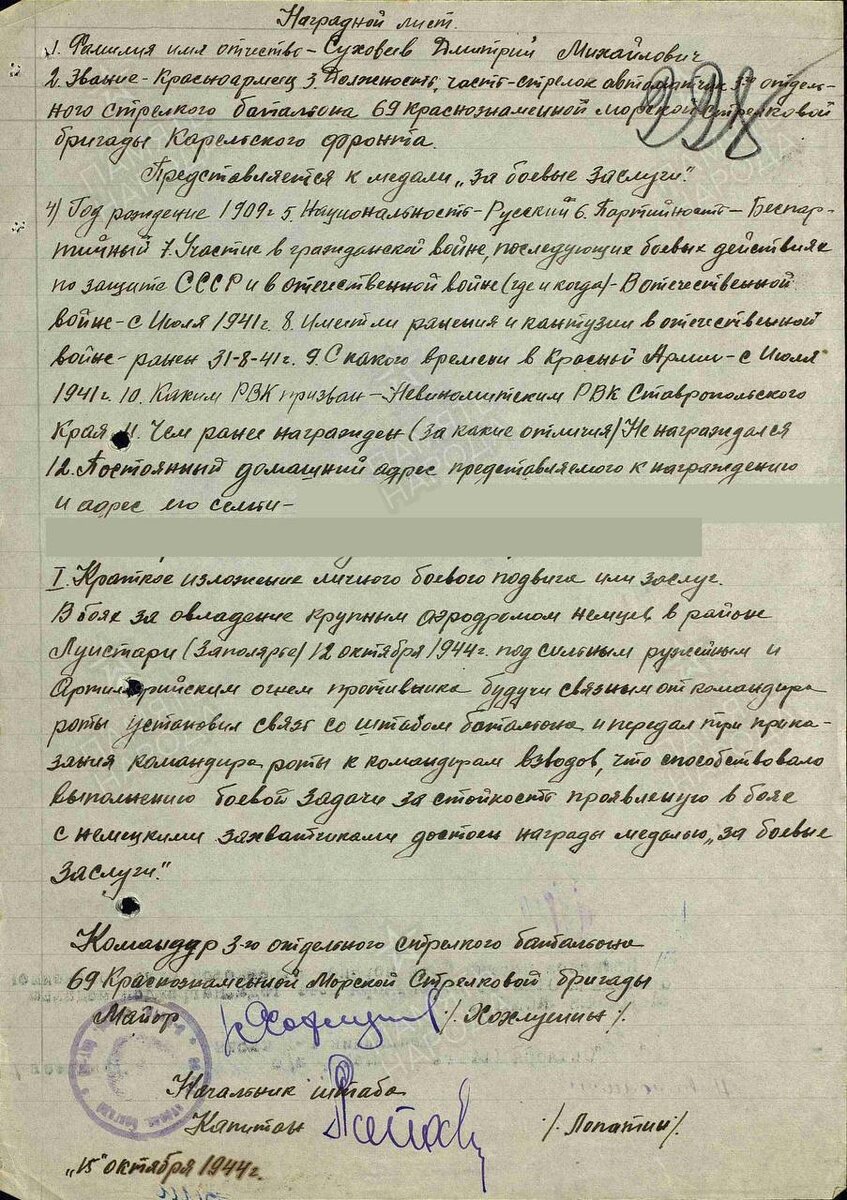 Наградной лист.
1. Фамилия имя отчество - Суховеев Дмитрий Михайлович
2. Звание - Красноармеец 3. Должность, часть - стрелок автоматчик 3го отдель-
ного стрелкого баталъона 69 краснознаменной морской стрелковой
бригады Карельского фронта.
Представляется к медали „За боевые заслуги."
4) Год рождение 1909 г 5. Национальность - Русский 6. Партийность - Беспар-
тийный 7. Участие в гражданской войне, последующих боевых действиях
по защите СССР и в отечественной войне (где и когда) - В отечественной
войне - с Июля 1941 г. 8. Имеет ли ранения и кантузии в отечественной
войне - ранен 31-8-41 г. 9. С какого времени в Красный Армии - с Июля
1941 г. 10. Каким РВК призван - Невиномитским РВК Ставропольского
Края 11. Чем ранее награжден (за какие отличия) Не награждался
12. Постоянный домашний адрес представляемого к награждению
и адрес его семьи -
I. Краткое изложение личного боевого подвига или заслуг.
В боях за овладение крупным аэродромом немцев в район
Луистари (Заполярье) 12 октября 1944 г. под сильным ружейным и
Артиллерийским огнем противника будучи связным от командира
роты установил связь со штабом батальона и передал три прика-
зания командира роты к командирам взводов, что способствовало
выполнению боевой задачи за стойкость проявленую в боях
с немецкими захватчиками достоен награды медалью „за боевые
заслуги."
Командир 3-го отдельного стрелкого батальона
69 Краснознаменной Морской Стрелковой бригады
Майор /Хохлушин/.
Начальник штаба
Капитан /Лопатин/
„15" октября 1944 г.